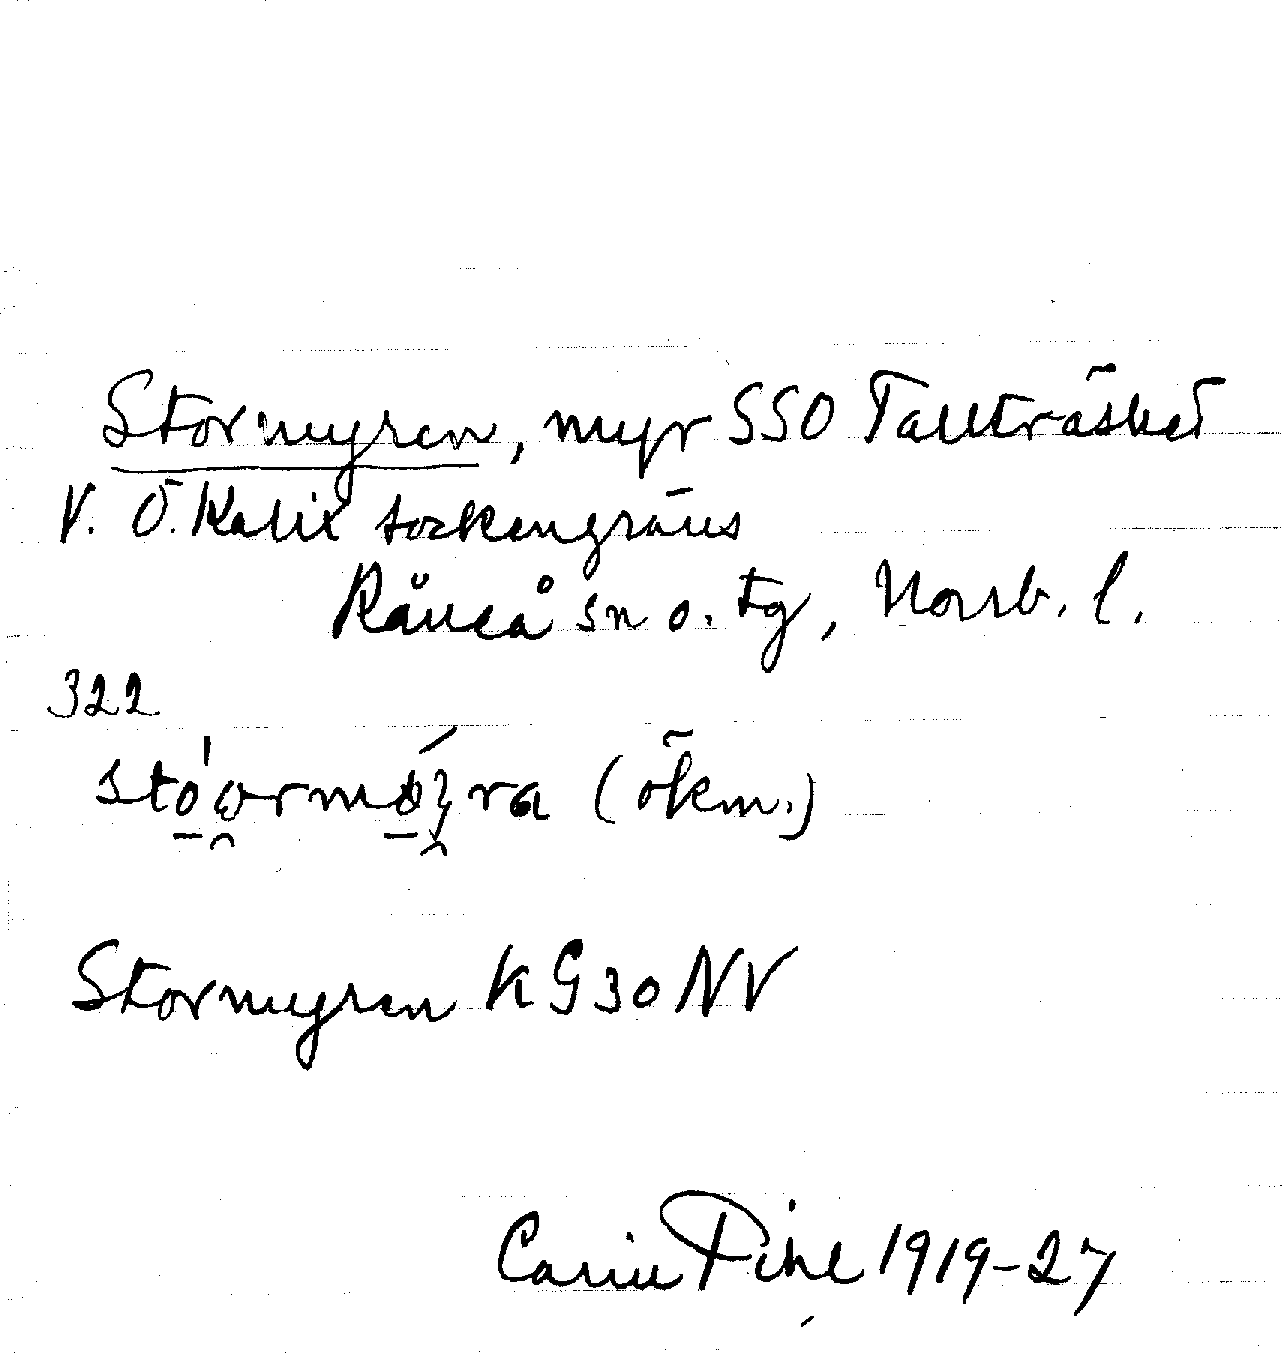 Stormyren, myr SSO Tallträsket
V. Ö. Kalix sockengräns
Råneå sn o. tg, Norrb. l.
322
(ökm.)
Stormyren KG30NV
Carin Pihl 1919-27